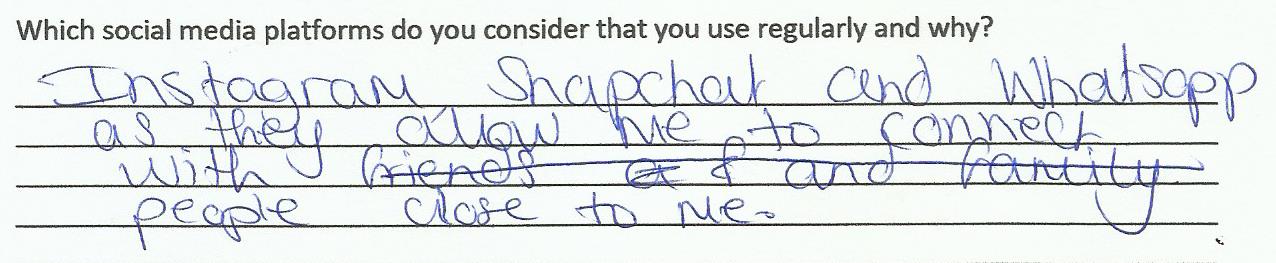 Which social media platforms do you consider that you use regularly and why?
Instagram Snapchat and Whatsapp
as they allow me to connect
with friends & and family
people close to me.